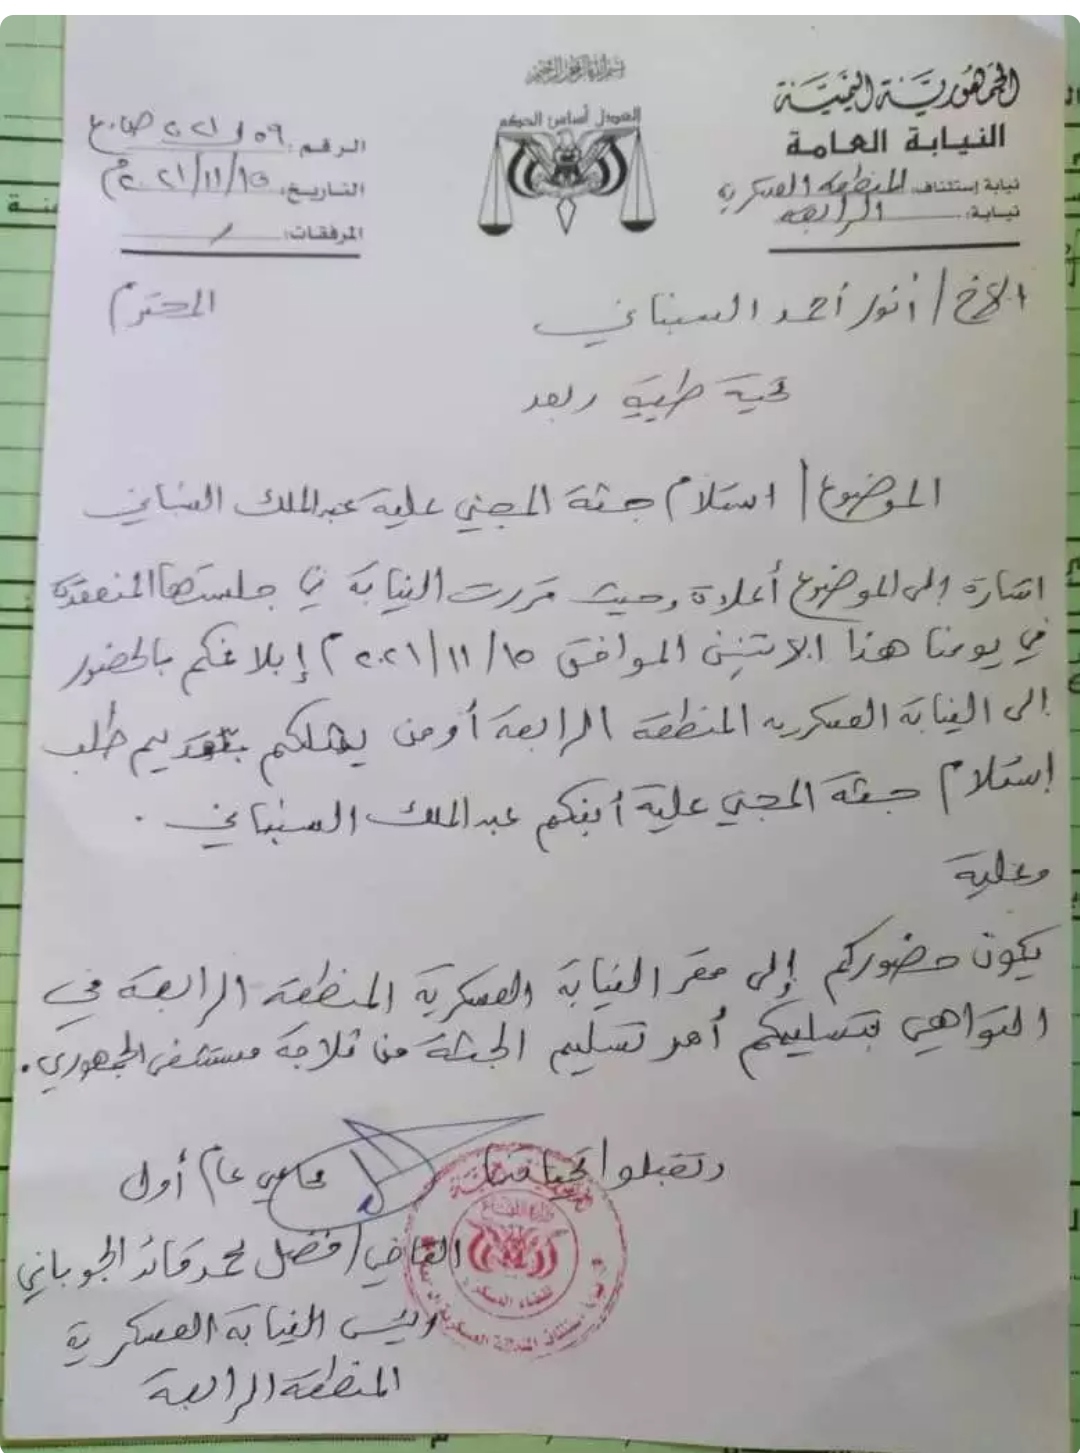 بسم الله الرحمن الرحيم
الجمهورية اليمنية
النيابة العامة
نيابة إستئناف: المنطقة العسكرية
نيابة: الرابعة
العدل أساس الحكم
الرقم:
التاريخ: ٢٠٢١/١١/١٥م
المرفقات: /
الاخ / أنور أحمد السنباني المحترم
تحية طيبة وبعد
الموضوع / استلام جثة المجني علية عبدالملك السنباني
اشارة إلى الموضوع أعلاة وحيث قررت النيابة في جلستها المنعقدة
في يومنا هذا الاثنين الموافق ٢٠٢١/١١/١٥م إبلاغكم بالحضور
إلى النيابة العسكرية المنطقة الرابعة أو من يمثلكم بتقديم طلب
إستلام جثة المجني علية أبنكم عبدالملك السنباني .
وعلية
يكون حضوركم إلى مقر النيابة العسكرية المنطقة الرابعة في
التواهي بتسليمكم أمر تسليم الجثة من ثلاجة مستشفى الجمهوري .
وتقبلوا تحياتنا
محامي عام أول
القاضي / فضل محمد قائد الجوباني
رئيس النيابة العسكرية
المنطقة الرابعة